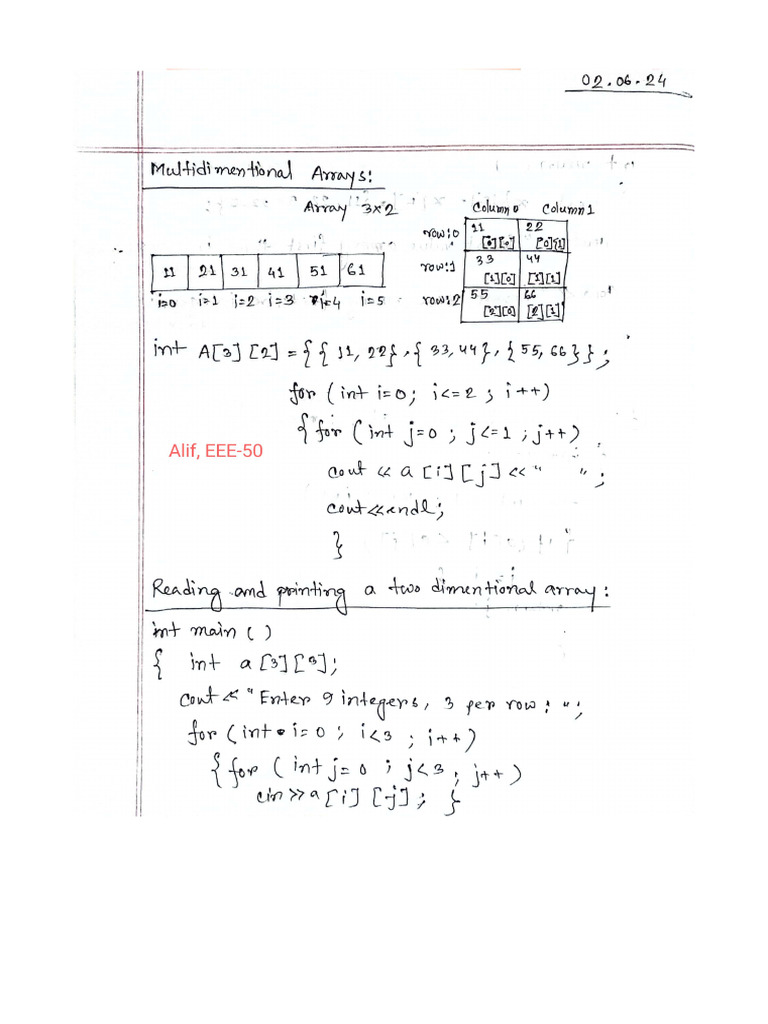 02.06.24
Multidimentional Arrays:
Array 3x2
column0 column1
row:0 11 [0][0] 22 [0][1]
row:1 33 [1][0] 44 [1][1]
row:2 55 [2][0] 66 [2][1]
11 21 31 41 51 61
i=0 i=1 i=2 i=3 i=4 i=5
int A[3][2]={{11,22},{33,44},{55,66}};
for (int i=0; i<=2; i++)
{for (int j=0; j<=1; j++)
Alif, EEE-50
cout << a[i][j] << " ";
cout<<endl;
}
Reading and printing a two dimentional array:
int main ( )
{ int a[3][3];
cout << "Enter 9 integers, 3 per row: ";
for (int i=0; i<3; i++)
{for (int j=0; j<3, j++)
cin>>a[i][j]; }